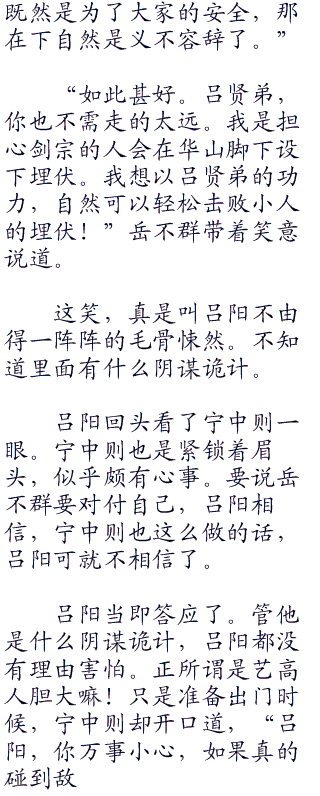 既然是为了大家的安全，那
在下自然是义不容辞了。”
“如此甚好。吕贤弟，
你也不需走的太远。我是担
心剑宗的人会在华山脚下设
下埋伏。我想以吕贤弟的功
力，自然可以轻松击败小人
的埋伏！”岳不群带着笑意
说道。
这笑，真是叫吕阳不由
得一阵阵的毛骨悚然。不知
道里面有什么阴谋诡计。
吕阳回头看了宁中则一
眼。宁中则也是紧锁着眉
头，似乎颇有心事。要说岳
不群要对付自己，吕阳相
信，宁中则也这么做的话，
吕阳可就不相信了。
吕阳当即答应了。管他
是什么阴谋诡计，吕阳都没
有理由害怕。正所谓是艺高
人胆大嘛！只是准备出门时
候，宁中则却开口道，“吕
阳，你万事小心，如果真的
碰到敌